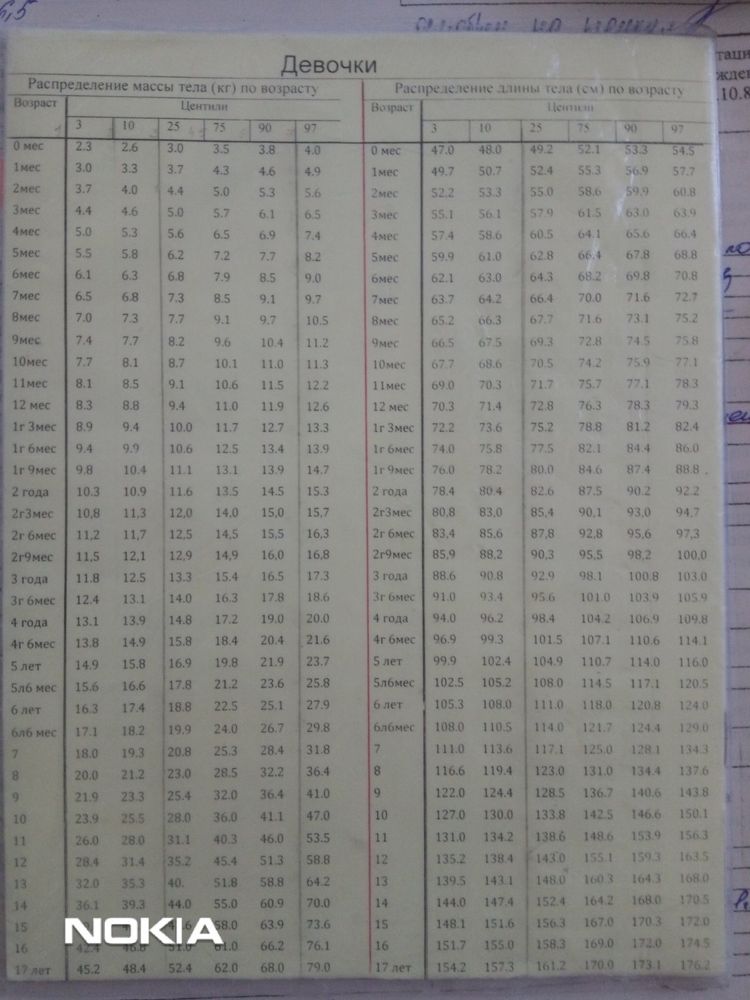 Девочки
Распределение массы тела (кг) по возрасту
Возраст Центили
3 10 25 75 90 97
0 мес 2.3 2.6 3.0 3.5 3.8 4.0
1мес 3.0 3.3 3.7 4.3 4.6 4.9
2мес 3.7 4.0 4.4 5.0 5.3 5.6
3мес 4.4 4.6 5.0 5.7 6.1 6.5
4мес 5.0 5.3 5.6 6.5 6.9 7.4
5мес 5.5 5.8 6.2 7.2 7.7 8.2
6мес 6.1 6.3 6.8 7.9 8.5 9.0
7мес 6.5 6.8 7.3 8.5 9.1 9.7
8мес 7.0 7.3 7.7 9.1 9.7 10.5
9мес 7.4 7.7 8.2 9.6 10.4 11.2
10мес 7.7 8.1 8.7 10.1 11.0 11.3
11мес 8.1 8.5 9.1 10.6 11.5 12.2
12 мес 8.3 8.8 9.4 11.0 11.9 12.6
1г 3мес 8.9 9.4 10.0 11.7 12.7 13.3
1г 6мес 9.4 9.9 10.6 12.5 13.4 13.9
1г 9мес 9.8 10.4 11.1 13.1 13.9 14.7
2 года 10.3 10.9 11.6 13.5 14.5 15.3
2г3мес 10,8 11.3 12.0 14.0 15.0 15.7
2г 6мес 11,2 11,7 12,5 14,5 15,5 16,3
2г9мес 11,5 12,1 12,9 14,9 16,0 16,8
3 года 11.8 12.5 13.3 15.4 16.5 17.3
3г 6мес 12.4 13.1 14.0 16.3 17.8 18.6
4 года 13.1 13.9 14.8 17.2 19.0 20.0
4г 6мес 13.8 14.9 15.8 18.4 20.4 21.6
5 лет 14.9 15.8 16.9 19.8 21.9 23.7
5л6 мес 15.6 16.6 17.8 21.2 23.6 25.8
6 лет 16.3 17.4 18.8 22.5 25.1 27.9
6л6 мес 17.1 18.2 19.9 24.0 26.7 29.8
7 18.0 19.3 20.8 25.3 28.4 31.8
8 20.0 21.2 23.0 28.5 32.2 36.4
9 21.9 23.3 25.4 32.0 36.4 41.0
10 23.9 25.5 28.0 36.0 41.1 47.0
11 26.0 28.0 31.1 40.3 46.0 53.5
12 28.4 31.4 35.2 45.4 51.3 58.8
13 32.0 35.3 40. 51.8 58.8 64.2
14 36.1 39.3 44.0 55.0 60.9 70.0
15 58.0 63.9 73.6
16 61.0 66.2 76.1
17 лет 45.2 48.4 52.4 62.0 68.0 79.0
Распределение длины тела (см) по возрасту
Возраст Центили
3 10 25 75 90 97
0 мес 47.0 48.0 49.2 52.1 53.3 54.5
1мес 49.7 50.7 52.4 55.3 56.9 57.7
2мес 52.2 53.3 55.0 58.6 59.9 60.8
3мес 55.1 56.1 57.9 61.5 63.0 63.9
4мес 57.4 58.6 60.5 64.1 65.6 66.4
5мес 59.9 61.0 62.8 66.4 67.8 68.8
6мес 62.1 63.0 64.3 68.2 69.8 70.8
7мес 63.7 64.2 66.4 70.0 71.6 72.7
8мес 65.2 66.3 67.7 71.6 73.1 75.2
9мес 66.5 67.5 69.3 72.8 74.5 75.8
10мес 67.7 68.6 70.5 74.2 75.9 77.1
11мес 69.0 70.3 71.7 75.7 77.1 78.3
12 мес 70.3 71.4 72.8 76.3 78.3 79.3
1г 3мес 72.2 73.6 75.2 78.8 81.2 82.4
1г 6мес 74.0 75.8 77.5 82.1 84.4 86.0
1г 9мес 76.0 78.2 80.0 84.6 87.4 88.8
2 года 78.4 80.4 82.6 87.5 90.2 92.2
2г3мес 80,8 83.0 85.4 90,1 93.0 94.7
2г 6мес 83.4 85.6 87,8 92,8 95,6 97,3
2г9мес 85,9 88,2 90,3 95,5 98,2 100,0
3 года 88.6 90.8 92.9 98.1 100.8 103.0
3г 6мес 91.0 93.4 95.6 101.0 103.9 105.9
4 года 94.0 96.2 98.4 104.2 106.9 109.8
4г 6мес 96.9 99.3 101.5 107.1 110.6 114.1
5 лет 99.9 102.4 104.9 110.7 114.0 116.0
5л6мес 102.5 105.2 108.0 114.5 117.1 120.5
6 лет 105.3 108.0 111.0 118.0 120.8 124.0
6л6мес 108.0 110.5 114.0 121.7 124.4 129.0
7 111.0 113.6 117.1 125.0 128.1 134.3
8 116.6 119.4 123.0 131.0 134.4 137.6
9 122.0 124.4 128.5 136.7 140.6 143.8
10 127.0 130.0 133.8 142.5 146.6 150.1
11 131.0 134.2 138.6 148.6 153.9 156.3
12 135.2 138.4 143.0 155.1 159.3 163.5
13 139.5 143.1 148.0 160.3 164.3 168.0
14 144.0 147.4 152.4 164.2 168.0 170.5
15 148.1 151.6 156.3 167.0 170.3 172.0
16 151.7 155.0 158.3 169.0 172.0 174.5
17 лет 154.2 157.3 161.2 170.0 173.1 176.2
NOKIA